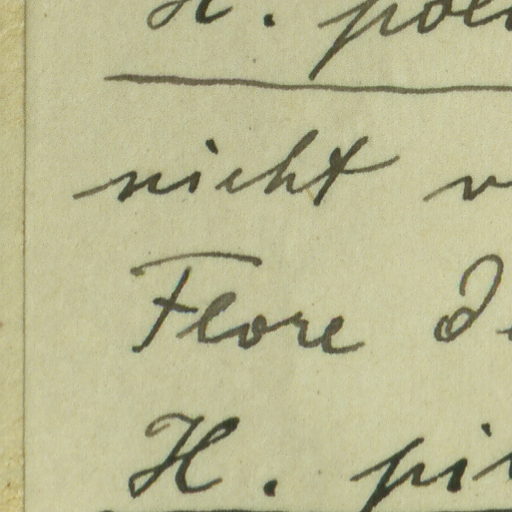 H. poe
nicht v
Flore d
H. pi